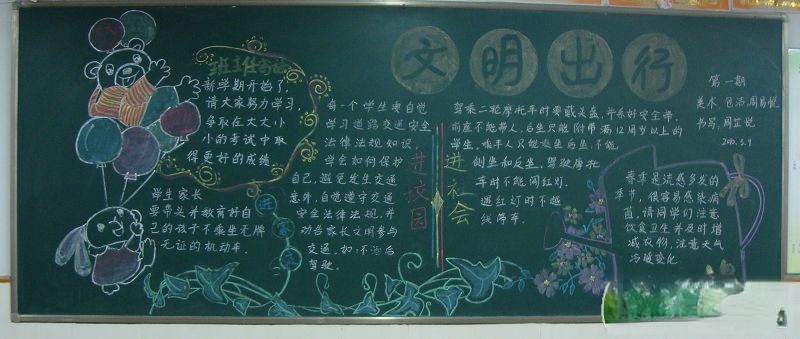 文明出行
班主任寄语
新学期开始了，
请大家努力学习，
争取在大大小
小的考试中取
得更好的成绩…
学生家长
要带头并教育好自
己的孩子不乘坐无牌
无证的机动车。
进家庭
每一个学生要自觉
学习道路交通安全
法律法规知识，
学会如何保护
自己，避免发生交通
意外，自觉遵守交通
安全法律法规，并
劝告家长文明参与
交通，如：不酒后
驾驶。
进校园
进社会
驾乘二轮摩托车时要戴头盔，并系好安全带，
前座不能带人，后坐只能附带满12周岁以上的
学生，后坐不能
侧坐和反坐，驾驶摩托
车时不能闯红灯，
遇红灯时不越
线停车。
第一期
美术：
书写：
春季是流感多发的
季节，很容易感染病
菌，请同学们注意
饮食卫生并及时增
减衣物，注意天气
冷暖变化